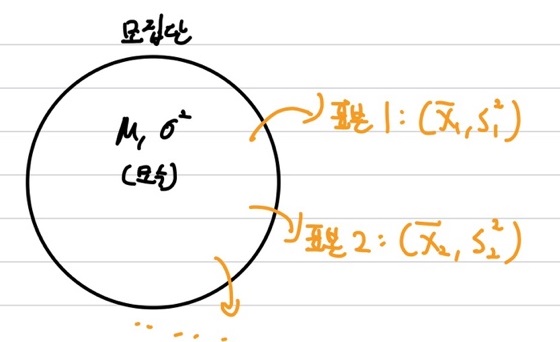 모집단
μ, σ²
(모수)
표본 1 : (X̄₁, S₁²)
표본 2 : (X̄₂, S₂²)
.. .. ..